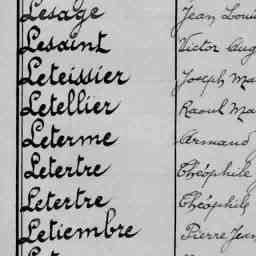 Lesage Jean Loui
Lesaint Victor Aug
Leteissier Joseph Ma
Letellier Raoul Ma
Leterme Armand
Letertre Théophile
Letertre Théophile
Letiembre Pierre Jean